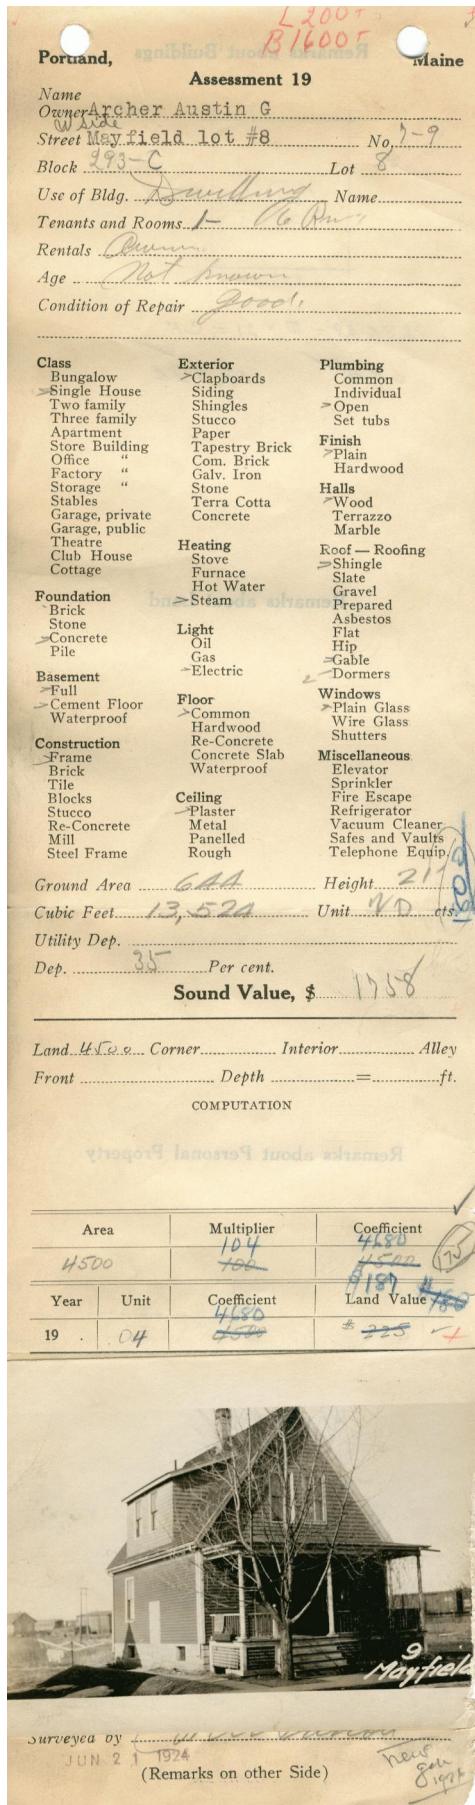 L 200 +
B 1600 +
Portland, Maine
Assessment 19
Name
Owner Archer Austin G
W side
Street Mayfield lot #8 No. 7-9
Block 293-C Lot 8
Use of Bldg. Dwelling Name
Tenants and Rooms 1- 6 Rms
Rentals Owner
Age Not known
Condition of Repair good
Class
Bungalow
Single House
Two family
Three family
Apartment
Store Building
Office "
Factory "
Storage "
Stables
Garage, private
Garage, public
Theatre
Club House
Cottage
Foundation
Brick
Stone
Concrete
Pile
Basement
Full
Cement Floor
Waterproof
Construction
Frame
Brick
Tile
Blocks
Stucco
Re-Concrete
Mill
Steel Frame
Exterior
Clapboards
Siding
Shingles
Stucco
Paper
Tapestry Brick
Com. Brick
Galv. Iron
Stone
Terra Cotta
Concrete
Heating
Stove
Furnace
Hot Water
Steam
Light
Oil
Gas
Electric
Floor
Common
Hardwood
Re-Concrete
Concrete Slab
Waterproof
Ceiling
Plaster
Metal
Panelled
Rough
Plumbing
Common
Individual
Open
Set tubs
Finish
Plain
Hardwood
Halls
Wood
Terrazzo
Marble
Roof — Roofing
Shingle
Slate
Gravel
Prepared
Asbestos
Flat
Hip
Gable
2 Dormers
Windows
Plain Glass
Wire Glass
Shutters
Miscellaneous
Elevator
Sprinkler
Fire Escape
Refrigerator
Vacuum Cleaner
Safes and Vaults
Telephone Equip.
1600
Ground Area 644 Height 21
Cubic Feet 13,524 Unit ND cts.
Utility Dep.
Dep. 35 Per cent.
Sound Value, $ 1758
Land 4500 Corner Interior Alley
Front Depth = ft.
COMPUTATION
Area Multiplier Coefficient
104 4680
4500 100 4500 175
$187
Year Unit Coefficient Land Value $180
4680
19 .04 4500 $225
9
Mayfield
Surveyed by
JUN 21 1924
(Remarks on other Side)
new
gar
1926